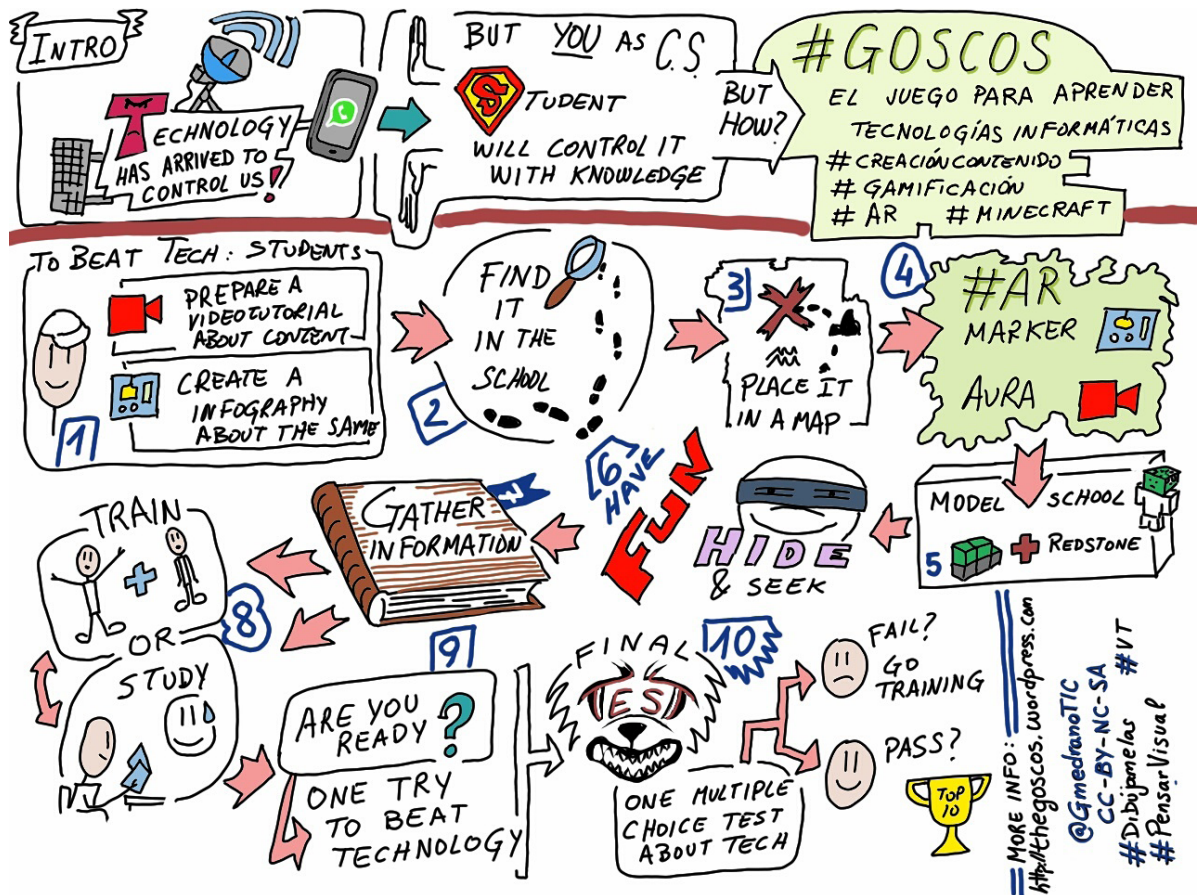 INTRO
TECHNOLOGY
HAS ARRIVED TO
CONTROL US!!
BUT YOU AS C.S.
STUDENT
WILL CONTROL IT
WITH KNOWLEDGE
BUT
HOW?
#GOSCOS
EL JUEGO PARA APRENDER
TECNOLOGÍAS INFORMÁTICAS
#CREACIÓNCONTENIDO
# GAMIFICACIÓN
# AR # MINECRAFT
TO BEAT TECH: STUDENTS
PREPARE A
VIDEOTUTORIAL
ABOUT CONTENT
CREATE A
INFOGRAPHY
ABOUT THE SAME
1
FIND
IT
IN THE
SCHOOL
2
3
PLACE IT
IN A MAP
4
#AR
MARKER
AURA
MODEL SCHOOL
5 + REDSTONE
HIDE
& SEEK
6
HAVE
FUN
W
GATHER
INFORMATION
TRAIN
+
OR
8
STUDY
9
ARE YOU
READY?
ONE TRY
TO BEAT
TECHNOLOGY
10
FINAL
TEST
ONE MULTIPLE
CHOICE TEST
ABOUT TECH
FAIL?
GO
TRAINING
PASS?
TOP
10
MORE INFO:
http://thegoscos.wordpress.com
@GmedranoTIC
CC-BY-NC-SA
#Dibujamelas #VT
#PensarVisual